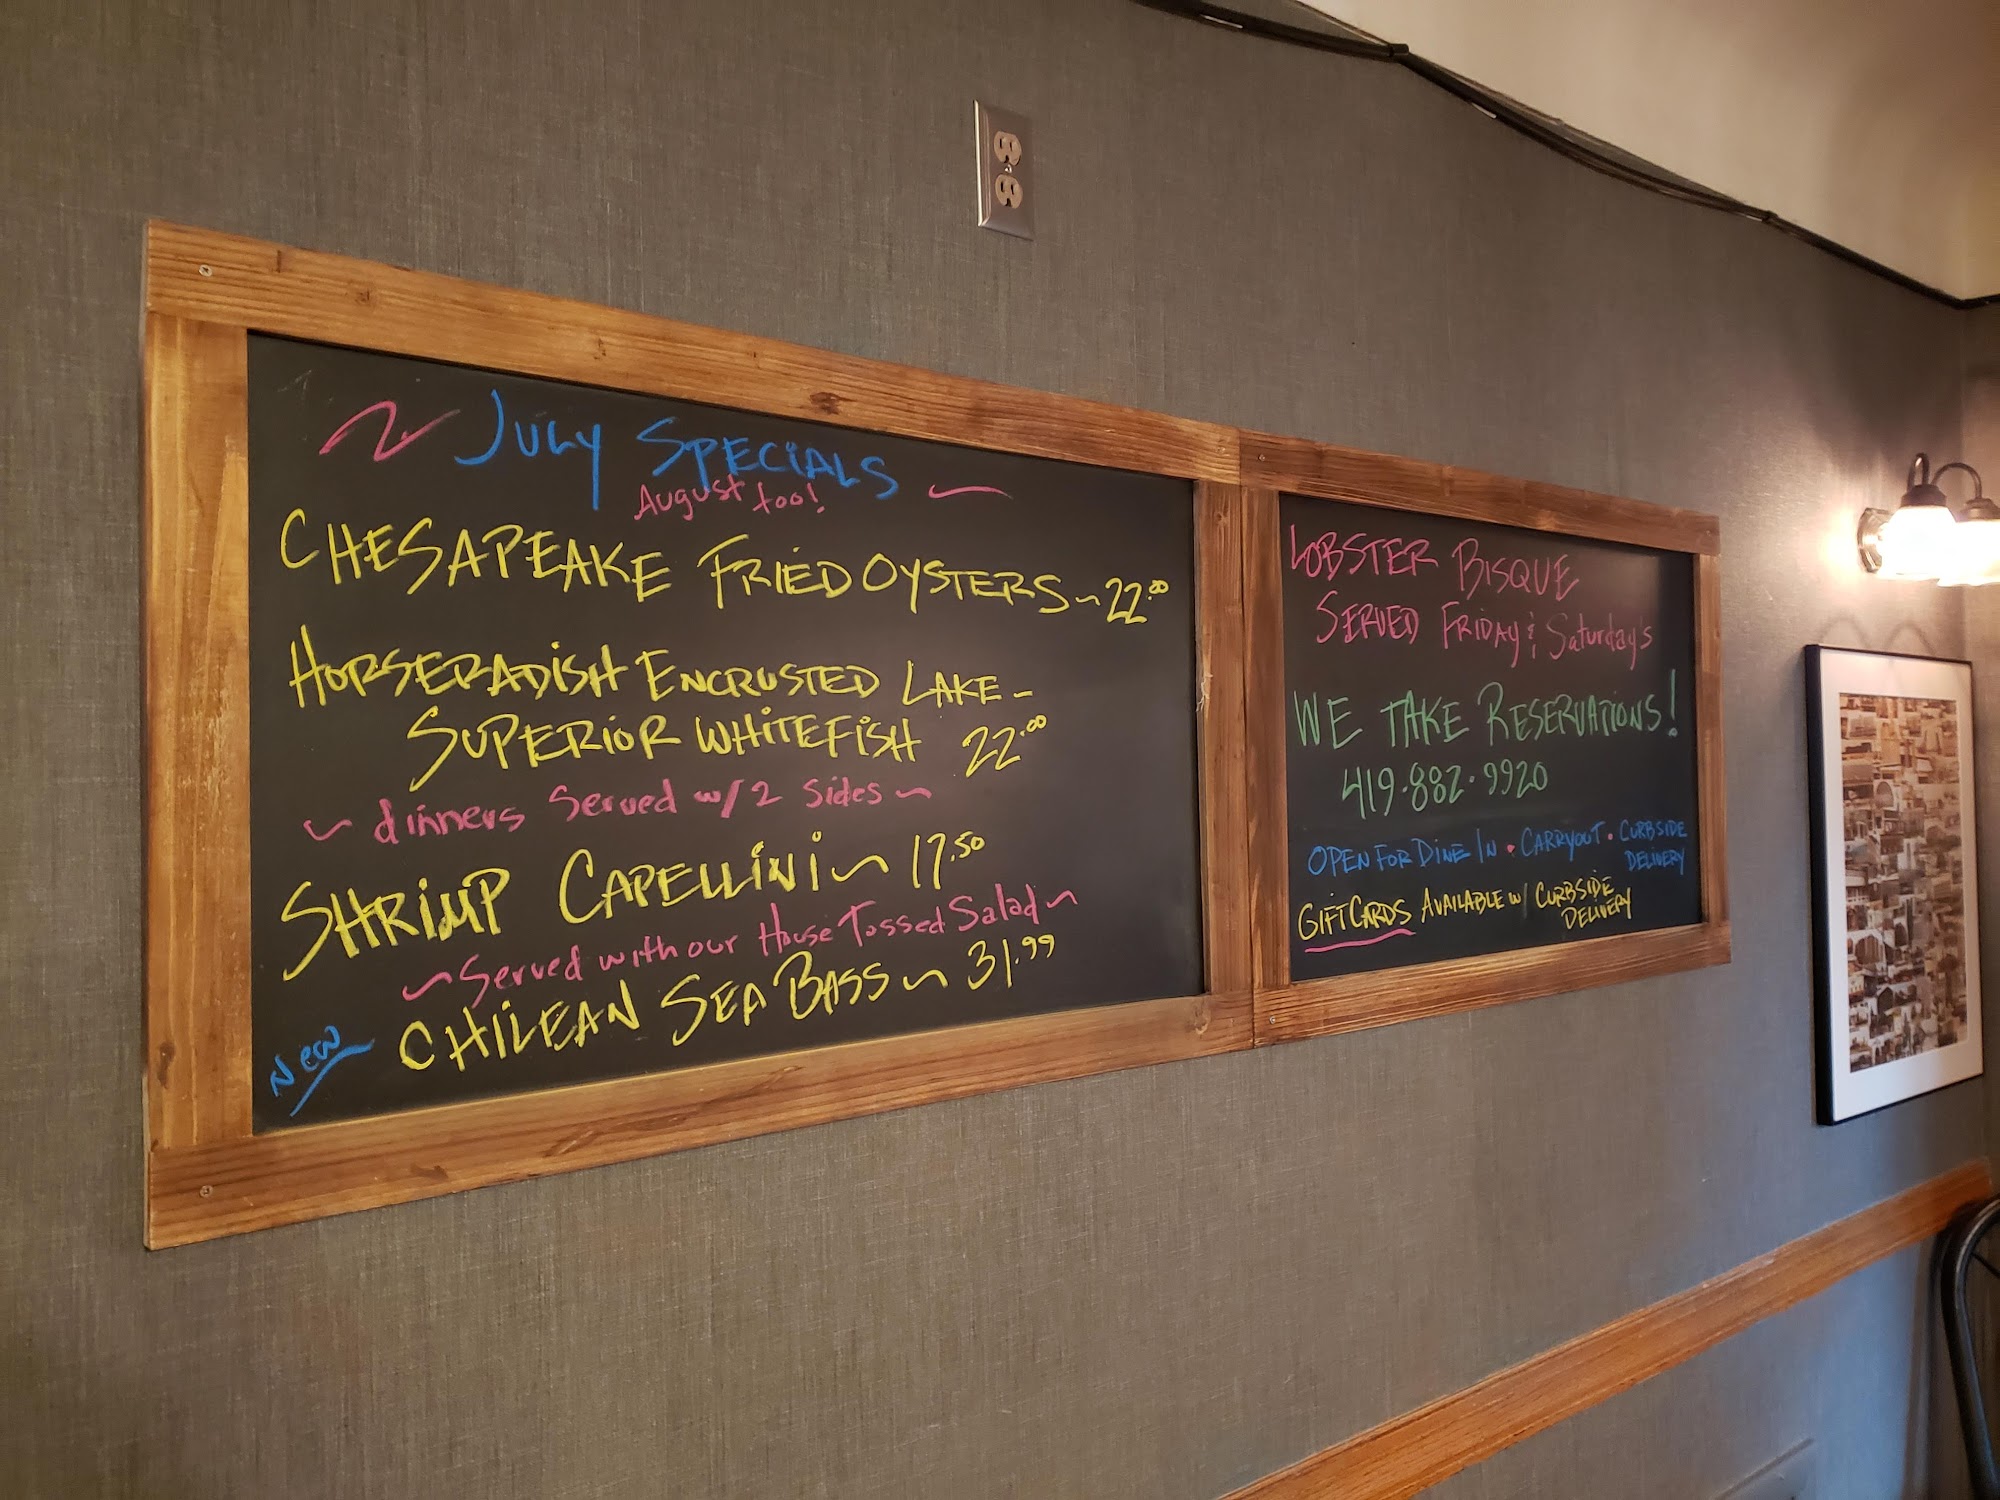 July Specials
August too!
Chesapeake Fried Oysters ~ 22.00
Horseradish Encrusted Lake -
Superior Whitefish 22.00
~ dinners served w/ 2 sides ~
Shrimp Capellini ~ 17.50
~ Served with our House Tossed Salad ~
New Chilean Sea Bass ~ 31.99
Lobster Bisque
Served Friday & Saturday's
We Take Reservations!
419·882·9920
Open for Dine In • Carryout • Curbside
Delivery
Gift Cards Available w/ Curbside
Delivery